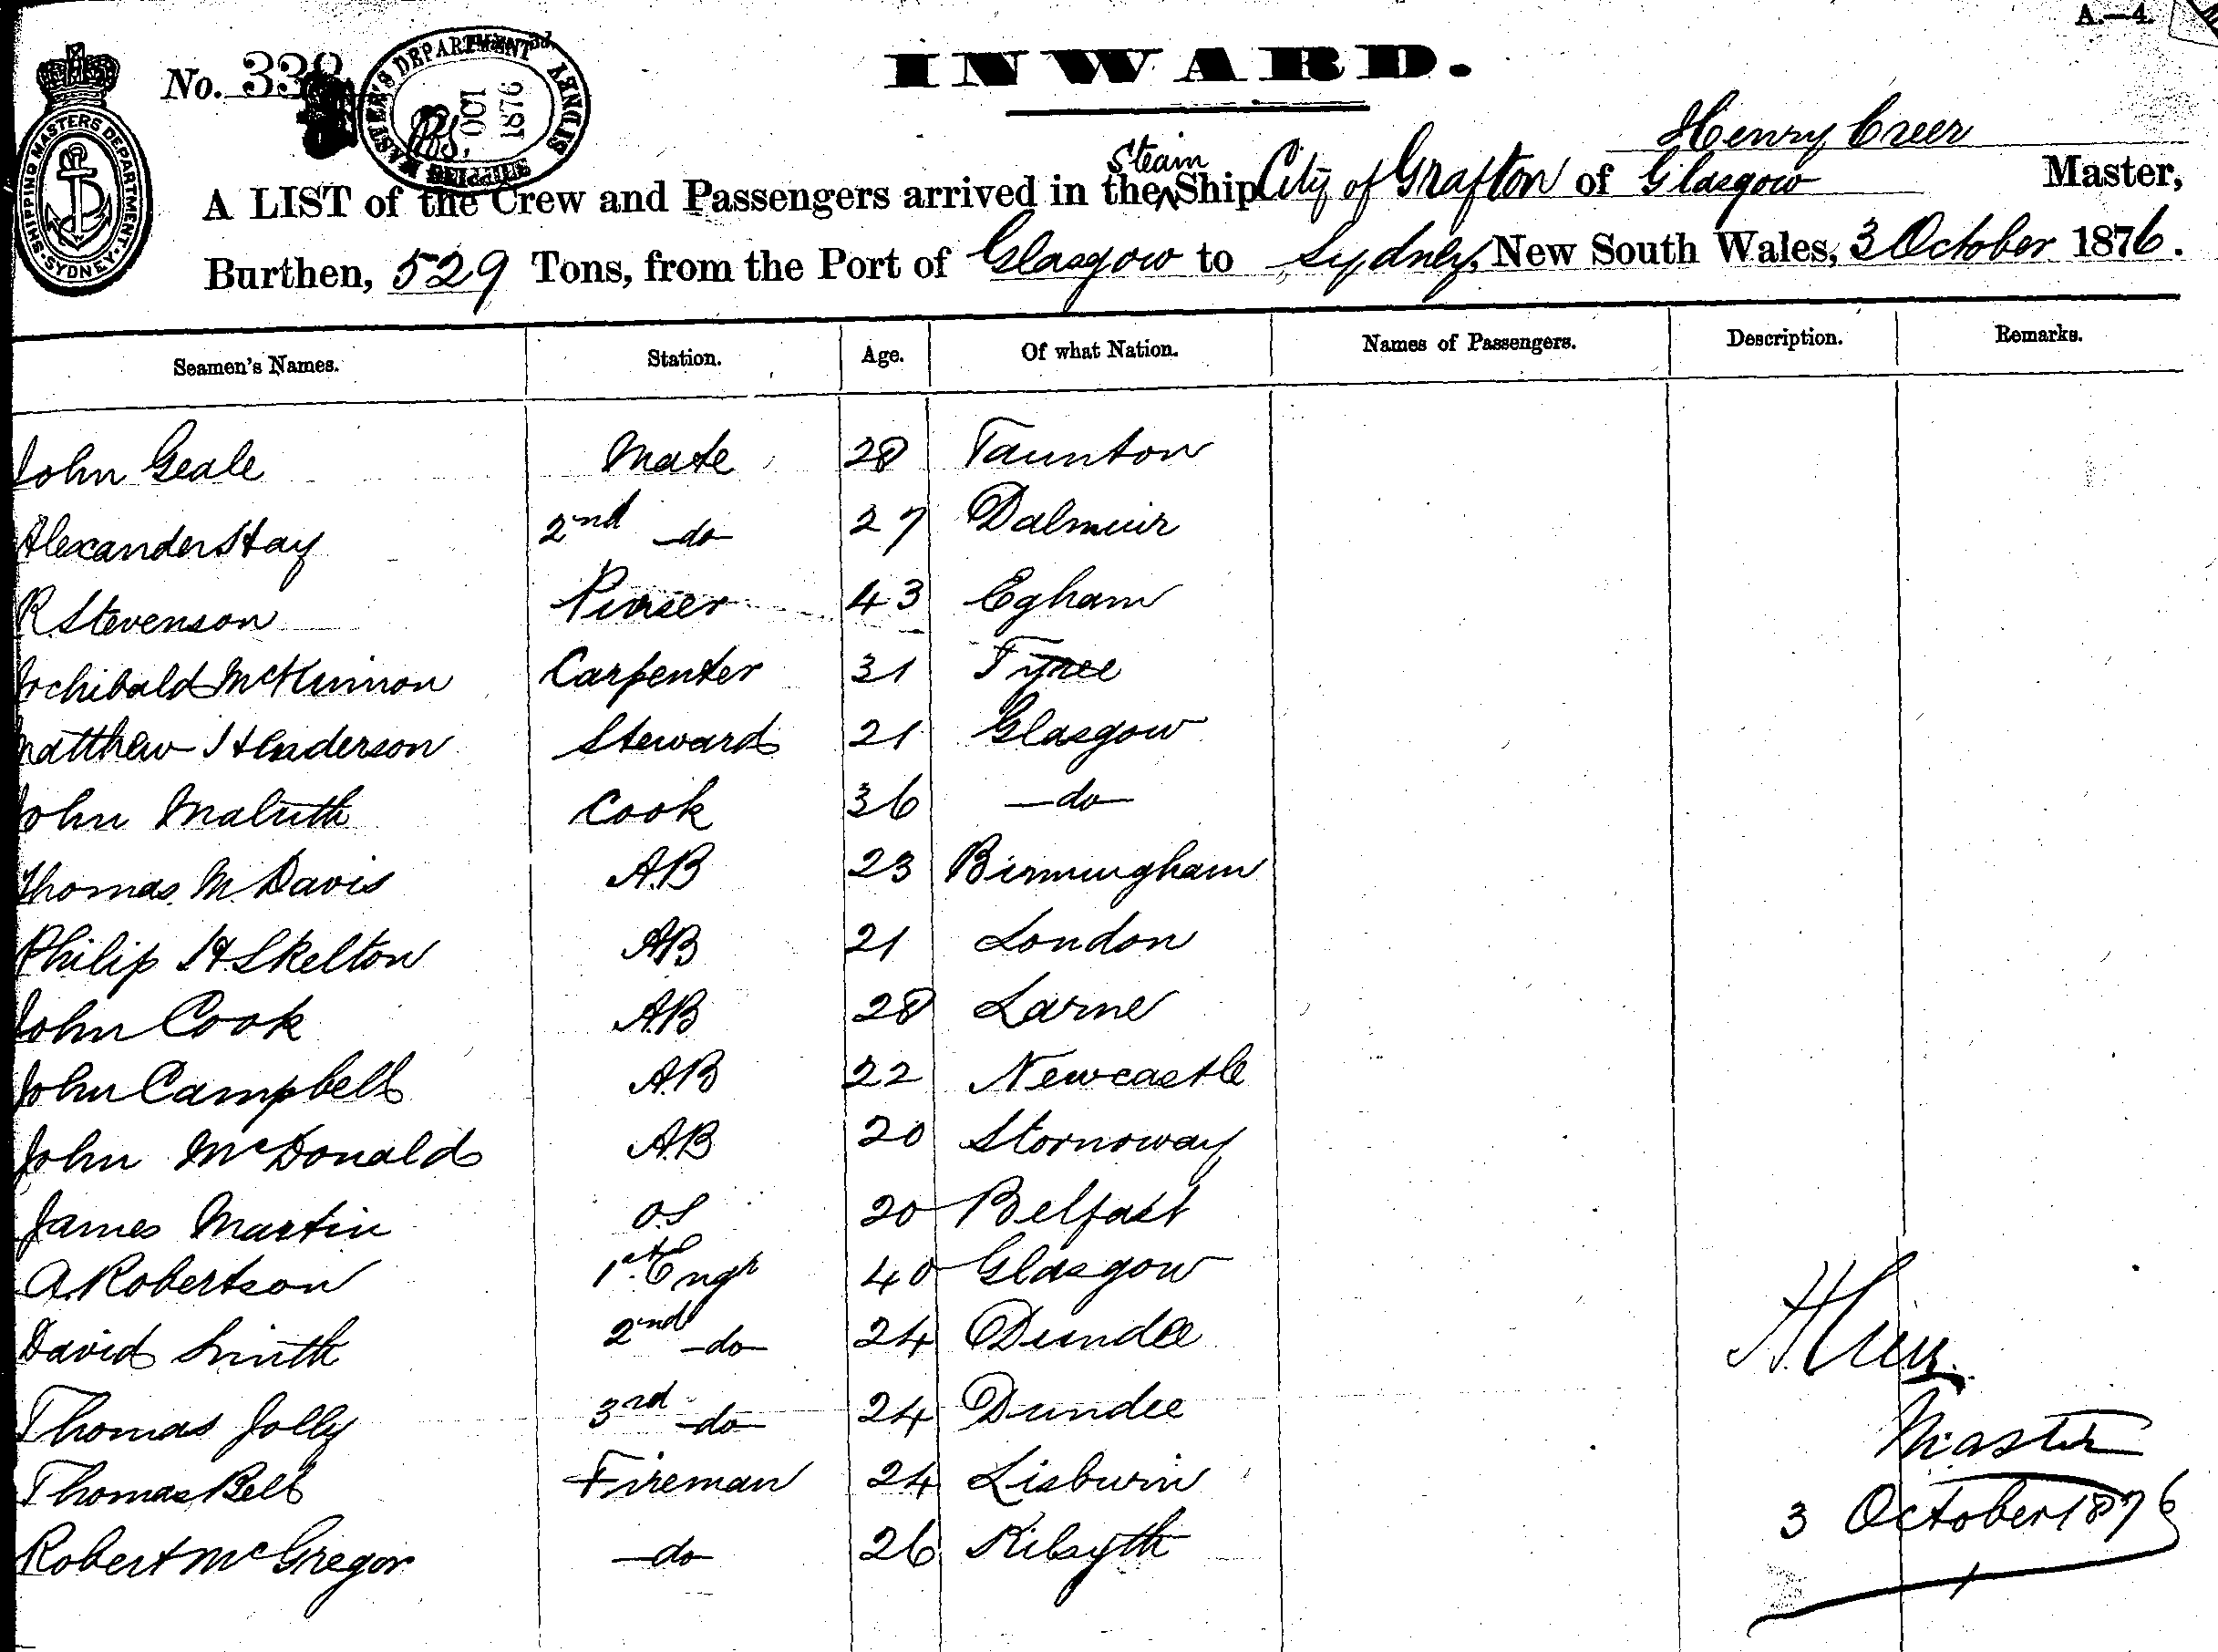 A.—4.
No. 338
SHIPPING MASTERS DEPARTMENT
SYDNEY
SHIPPING MASTER'S DEPARTMENT SYDNEY
OCT
1876
INWARD.
Henry Creer
A LIST of the Crew and Passengers arrived in the Steam Ship City of Grafton of Glasgow Master,
Burthen, 529 Tons, from the Port of Glasgow to Sydney, New South Wales, 3 October 1876.
Seamen's Names. Station. Age. Of what Nation. Names of Passengers. Description. Remarks.
John Geale Mate 28 Taunton
Alexander Hay 2nd do 27 Dalmuir
R Stevenson Purser 43 Egham
Archibald McKinnon Carpenter 31 Tyree
Matthew Henderson Steward 21 Glasgow
John Cook 36 do
Thomas M. Davis A.B 23 Birmingham
Philip H. Skelton AB 21 London
John Cook A.B 28 Larne
John Campbell A.B 22 Newcastle
John McDonald A.B 20 Stornoway
James Martin O.S 20 Belfast
A. Robertson 1st Engr 40 Glasgow
David Smith 2nd do 24 Dundee
Thomas Jolly 3rd do 24 Dundee
Thomas Bell Fireman 24 Lisburin
Robert McGregor do 26 Kilsyth
H. Creer
Master
3 October 1876